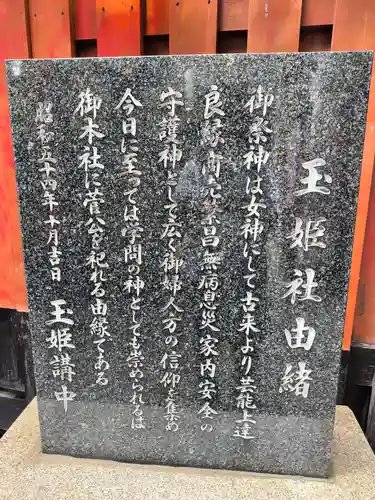 玉姫社由緒
御祭神は女神にして古来より芸能上達
良縁商売繁昌無病息災家内安全の
守護神として広く御婦人方の信仰を集め
今日に至つては学問の神としても崇められるは
御本社に菅公を祀れる由縁である
昭和五十四年十月吉日
玉姫講中